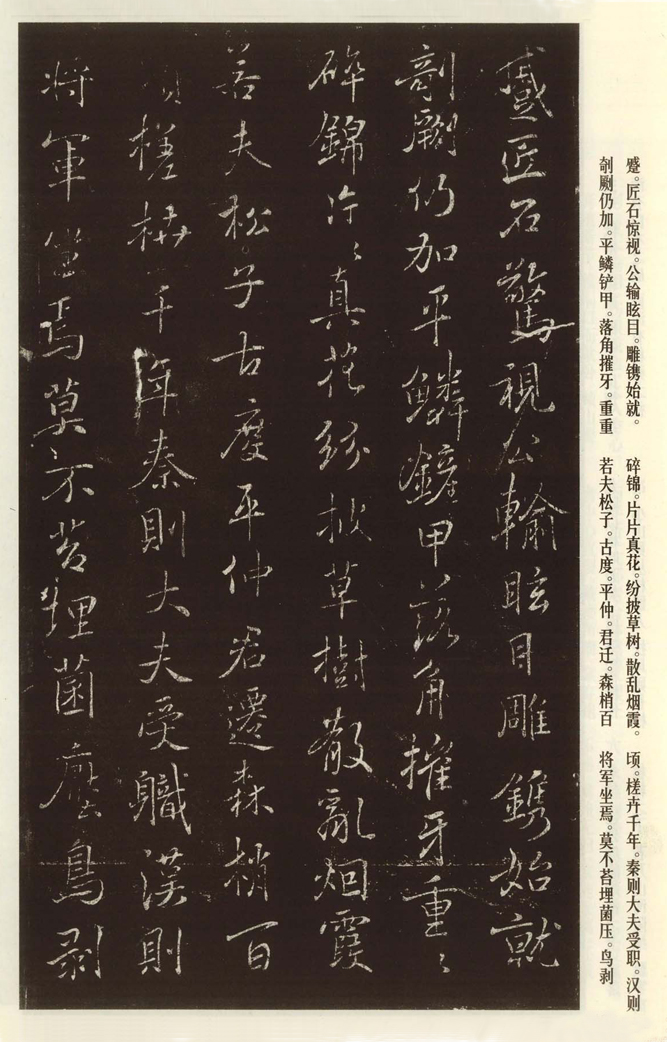 蹙。匠石惊视。公输眩目。雕镌始就。
剞劂仍加。平鳞铲甲。落角摧牙。重重
碎锦。片片真花。纷披草树。散乱烟霞。
若夫松子。古度。平仲。君迁。森梢百
顷。槎卉千年。秦则大夫受职。汉则
将军坐焉。莫不苔埋菌压。鸟剥
蹙匠石驚視公輸眩目雕鐫始就
剞劂仍加平鱗鏟甲落角摧牙重〻
碎錦片〻真花紛披草樹散亂烟霞
若夫松子古度平仲君遷森梢百
頃槎千年秦則大夫受職漢則
将軍坐焉莫不苔埋菌壓鳥剥